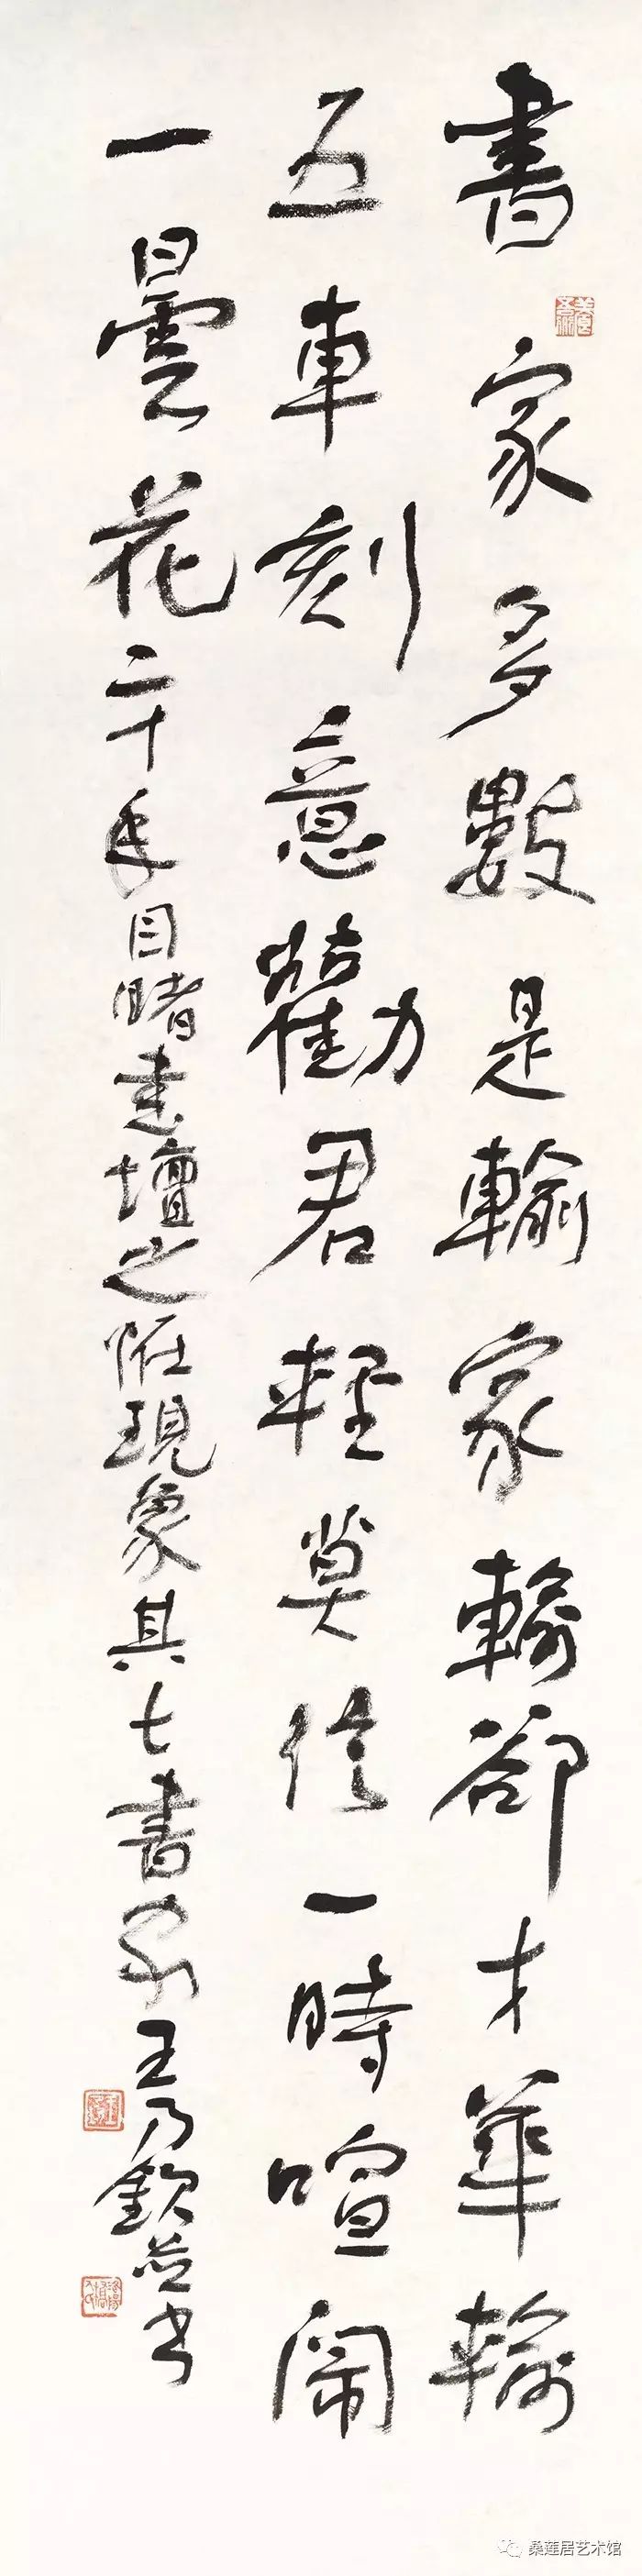 書家多數是輸家輸卻才華輸
五車刻意勸君輕莫信一時喧鬧
一曇花二十年目睹書壇之怪現象其七書家王乃欽並书
桑莲居艺术馆